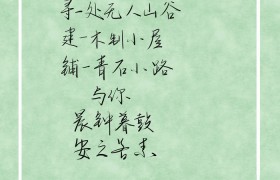 寻一处无人山谷
建一木制小屋
铺一青石小路
与你
晨钟暮鼓
安之若素